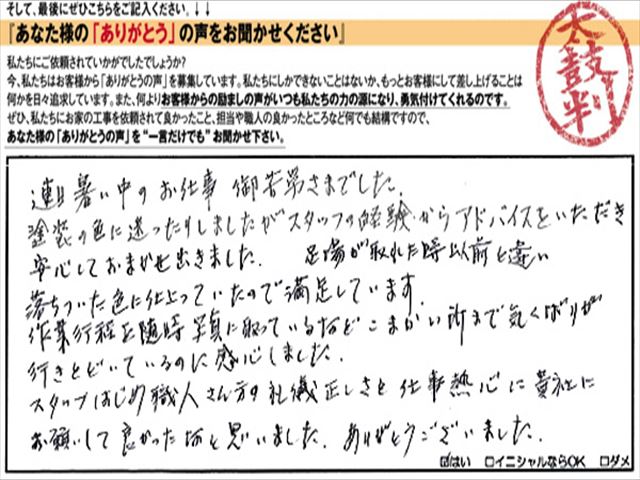 そして、最後にぜひこちらをご記入ください。↓↓
『あなた様の「ありがとう」の声をお聞かせください』
太鼓判
私たちにご依頼されていかがでしたでしょうか?
今、私たちはお客様から「ありがとうの声」を募集しています。私たちにしかできないことはないか、もっとお客様にして差し上げることは
何かを日々追求しています。また、何よりお客様からの励ましの声がいつも私たちの力の源になり、勇気付けてくれるのです。
ぜひ、私たちにお家の工事を依頼されて良かったこと、担当や職人の良かったところなど何でも結構ですので、
あなた様の「ありがとうの声」を“一言だけでも”お聞かせ下さい。
連日暑い中のお仕事 御苦労さまでした。
塗装の色に迷ったりしましたがスタッフの経験からアドバイスをいただき
安心しておまかせ出きました。 足場が取れた時以前と違い
落ちついた色に仕上っていたので満足しています。
作業行程を随時写真に取っているなどこまかい所まで気くばりが
行きとどいているのに感心しました。
スタッフはじめ職人さん方の礼儀正しさと仕事熱心に貴社に
お願いして良かったなと思いました。ありがとうございました。
☑はい □イニシャルならOK □ダメ